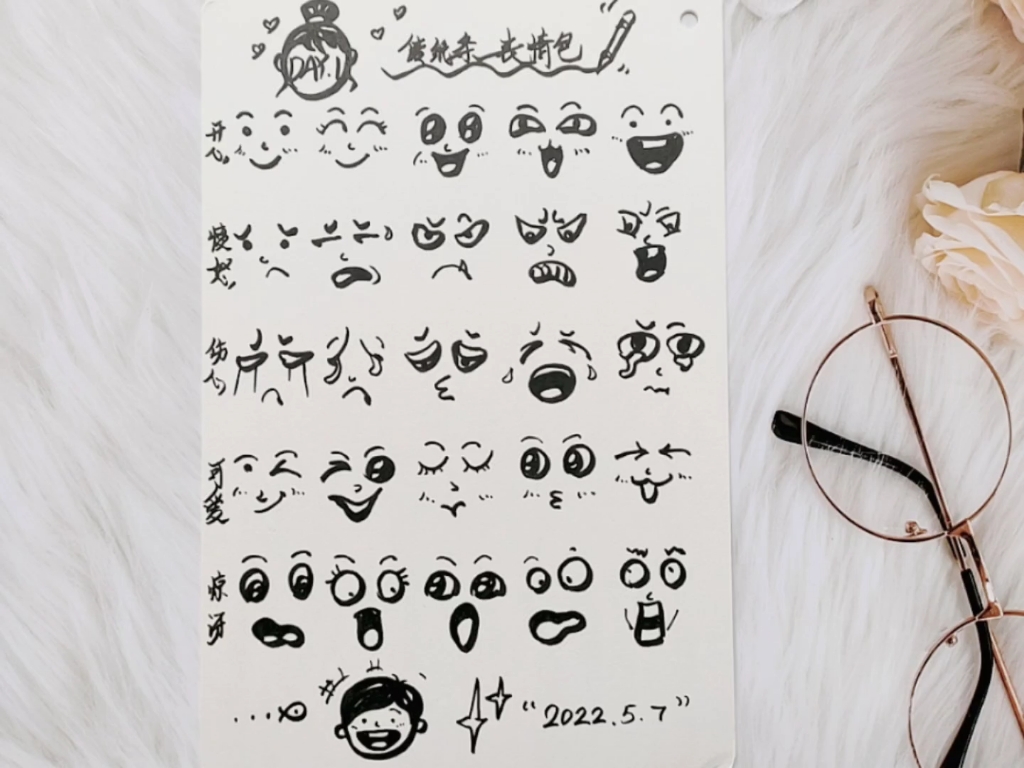 DAY.1
纸条 表情包
开心
愤怒
伤心
可爱
惊讶
“2022.5.7”